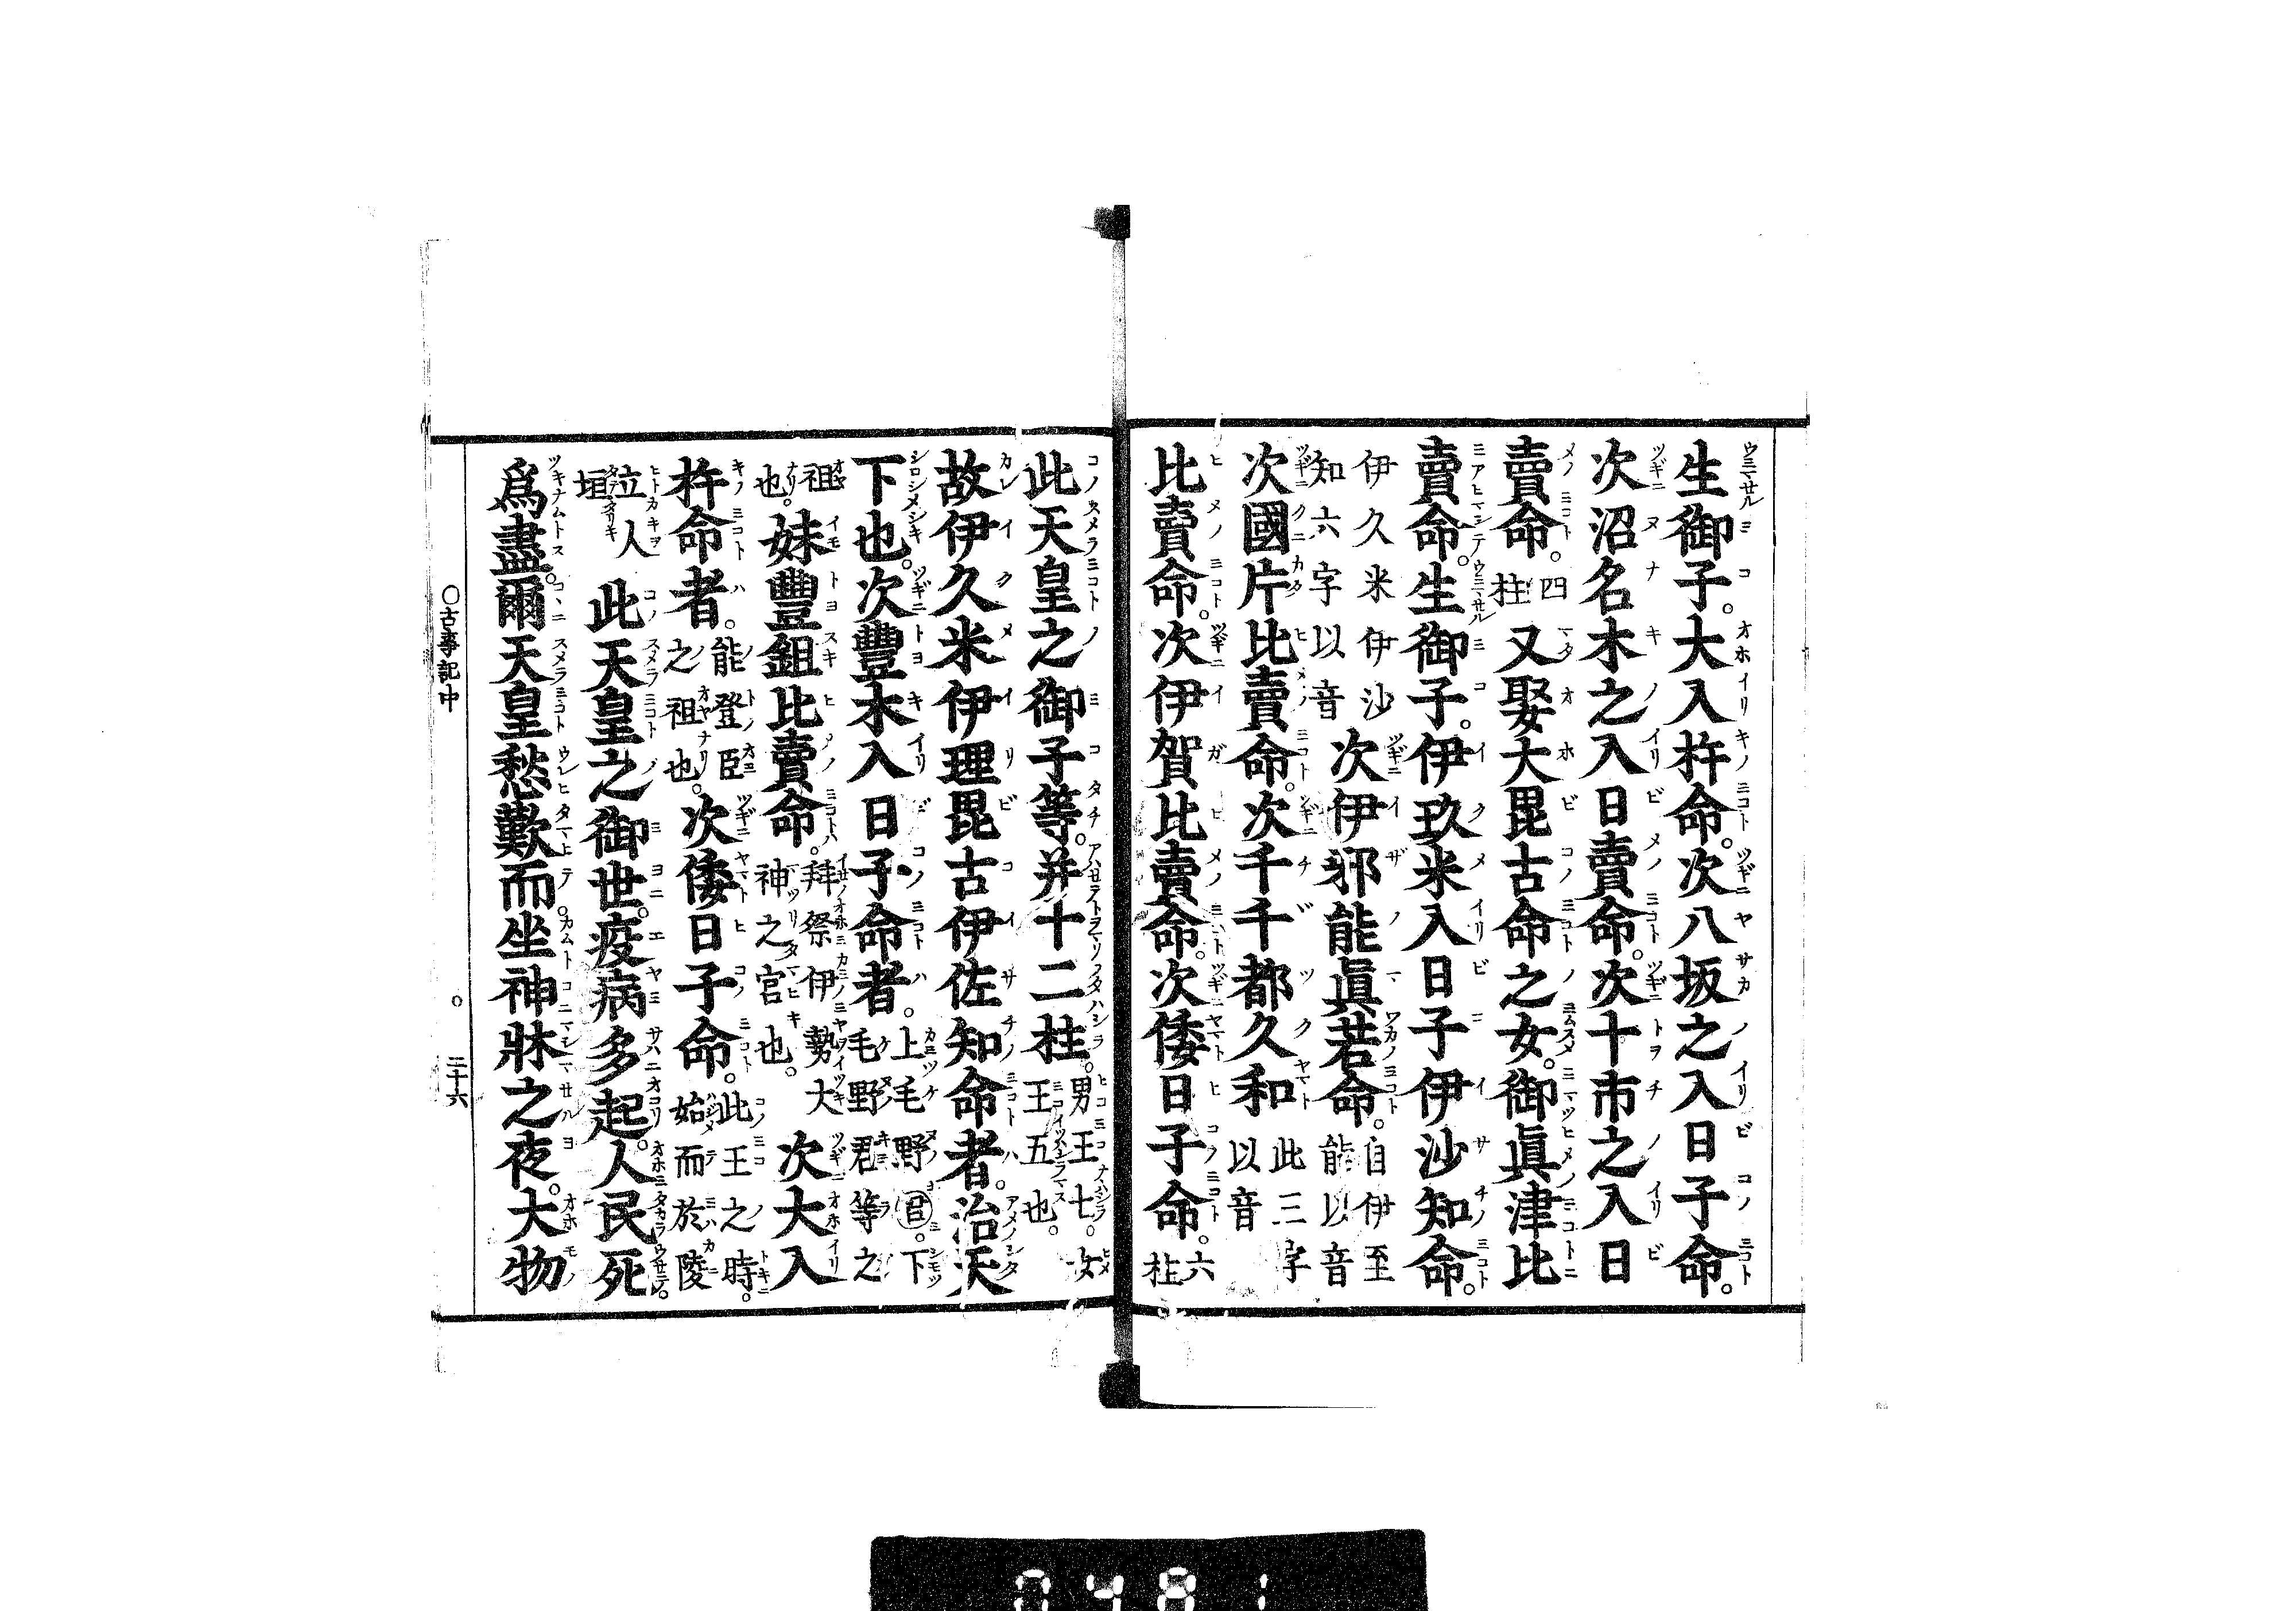 生御子。大入杵命。次八坂之入日子命。
次沼名木之入日賣命。次十市之入日
賣命。四柱又娶大毘古命之女。御眞津比
賣命。生御子。伊玖米入日子伊沙知命。
伊久米伊沙知六字以音次伊邪能眞若命。自伊至能以音
次國片比賣命。次千千都久和此三字以音
比賣命。次伊賀比賣命。次倭日子命。六柱
此天皇之御子等。并十二柱。男王七。女王五也。
故伊久米伊理毘古伊佐知命者。治天
下也。次豐木入日子命者。上毛野君。下毛野君等之
祖也。妹豐鉏比賣命。拜祭伊勢大神之宮也。次大入
杵命者。能登臣之祖也。次倭日子命。此王之時。始而於陵
立人垣此天皇之御世。疫病多起。人民死
爲盡。爾天皇愁歎而。坐神牀之夜。大物
○古事記中 ○ 二十六
0481